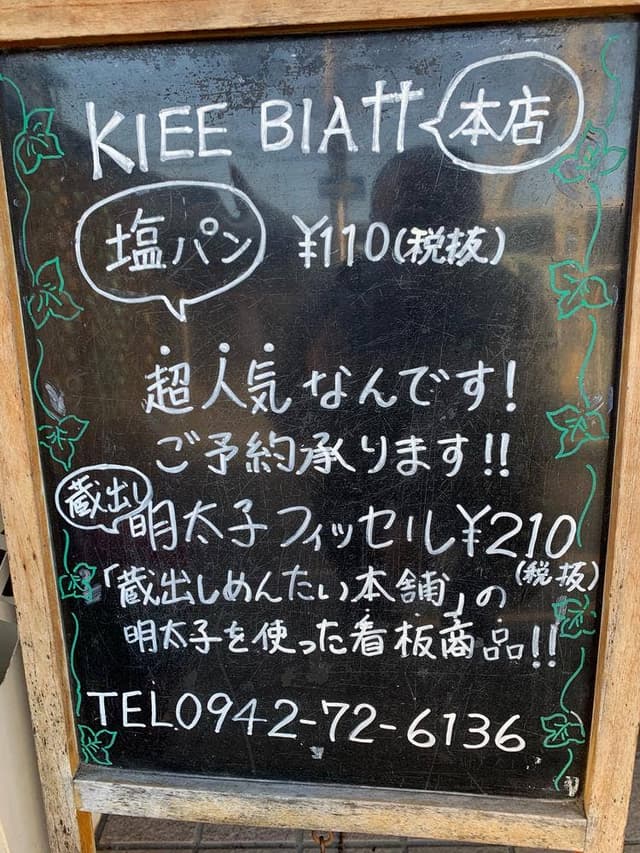 KIEE BIAtt 本店
塩パン ¥110(税抜)
超人気なんです!
ご予約承ります!!
蔵出し 明太子フィッセル¥210
(税抜)
「蔵出しめんたい本舗」の
明太子を使った看板商品!!
TEL.0942-72-6136